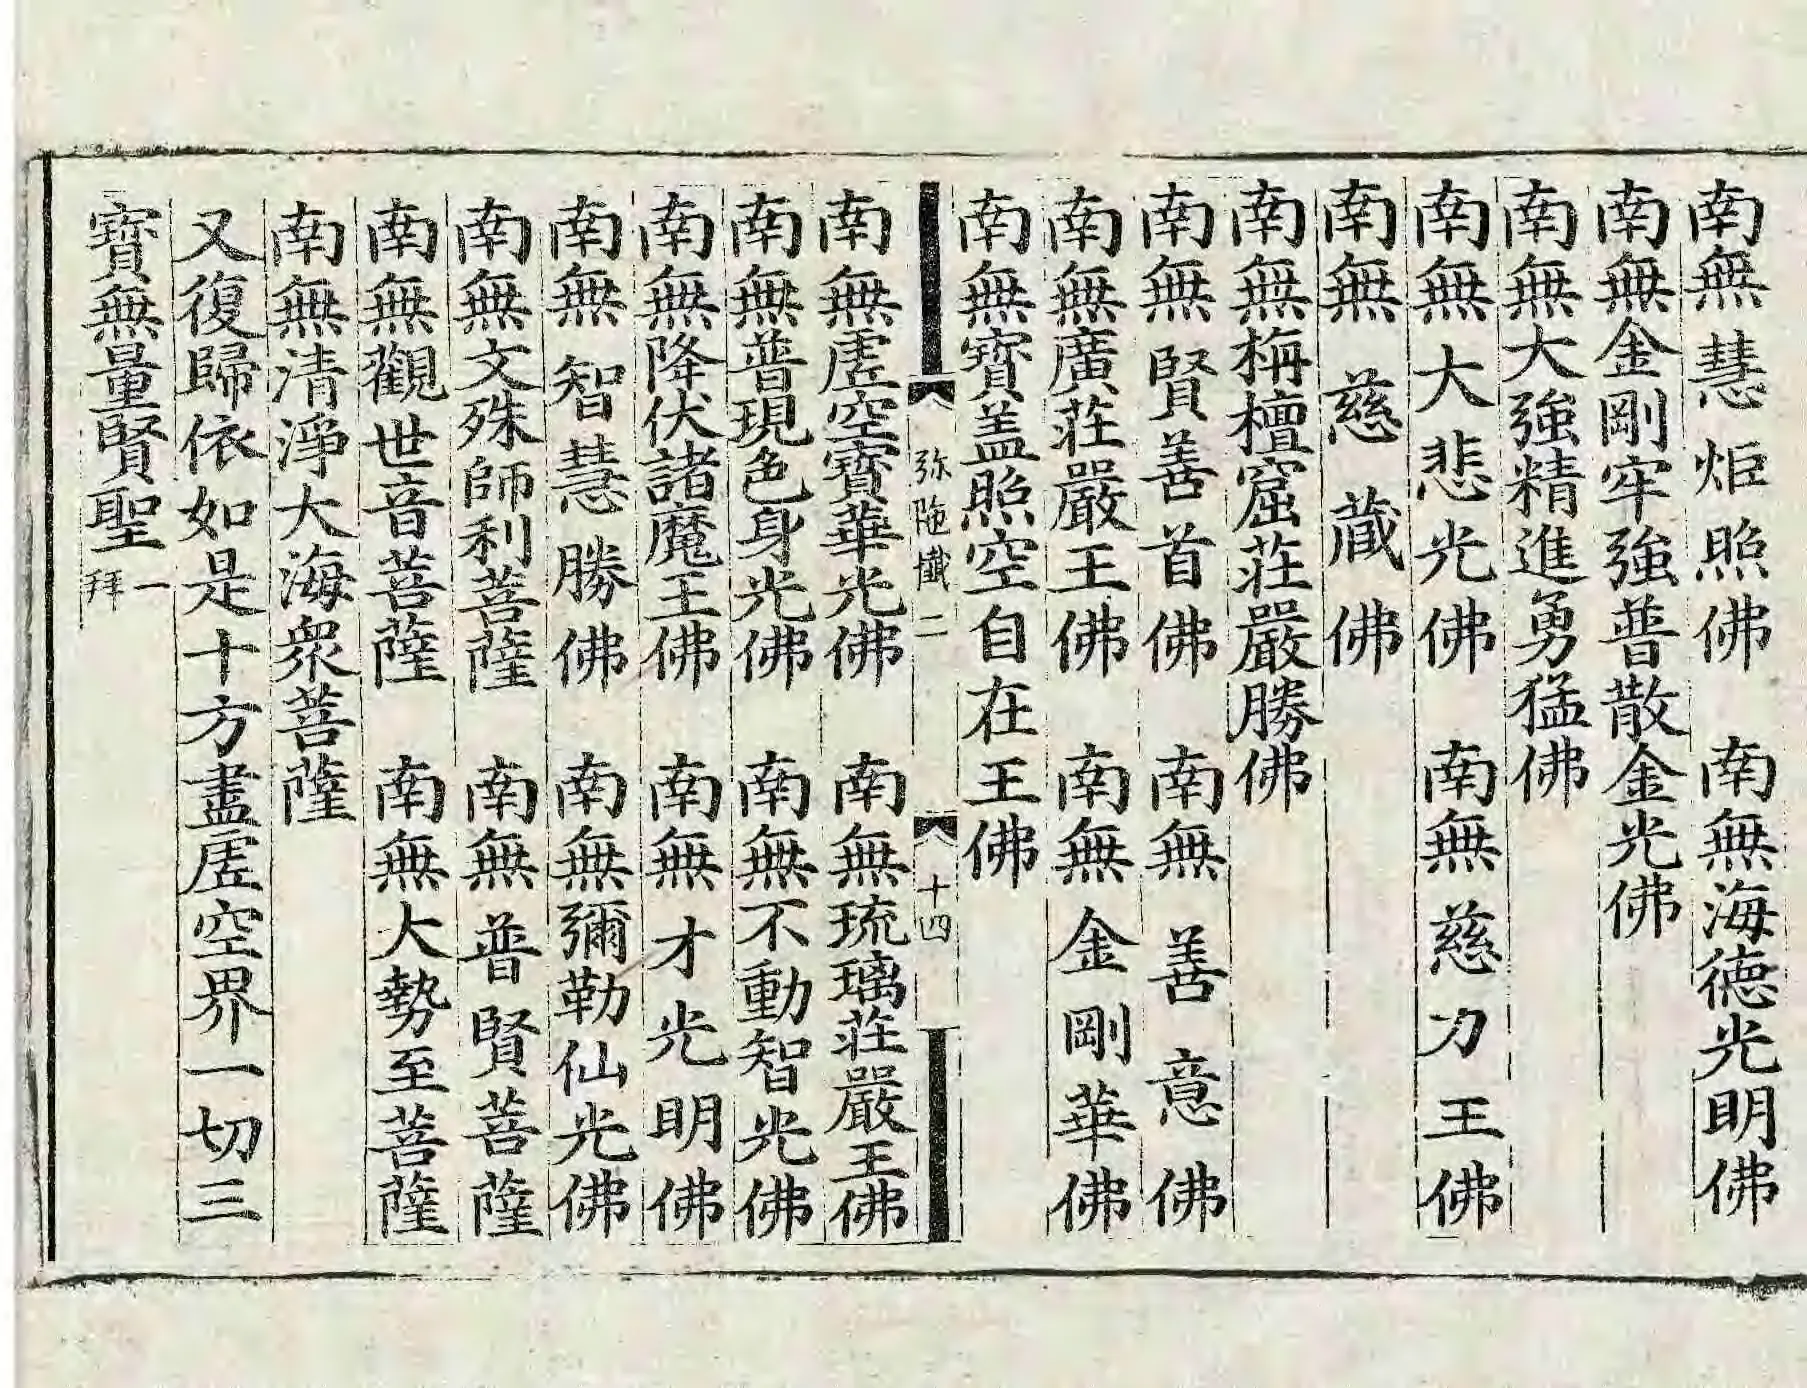 南無慧炬照佛　南無海德光明佛
南無金剛牢強普散金光佛
南無大強精進勇猛佛
南無大悲光佛　南無慈力王佛
南無慈藏佛
南無栴檀窟莊嚴勝佛
南無賢善首佛　南無善意佛
南無廣莊嚴王佛　南無金剛華佛
南無寶盖照空自在王佛
弥陁懺二　十四
南無虗空寶華光佛　南無琉璃莊嚴王佛
南無普現色身光佛　南無不動智光佛
南無降伏諸魔王佛　南無才光明佛
南無智慧勝佛　南無彌勒仙光佛
南無文殊師利菩薩　南無普賢菩薩
南無觀世音菩薩　南無大勢至菩薩
南無清淨大海衆菩薩
又復歸依如是十方盡虗空界一切三
寶無量賢聖一拜